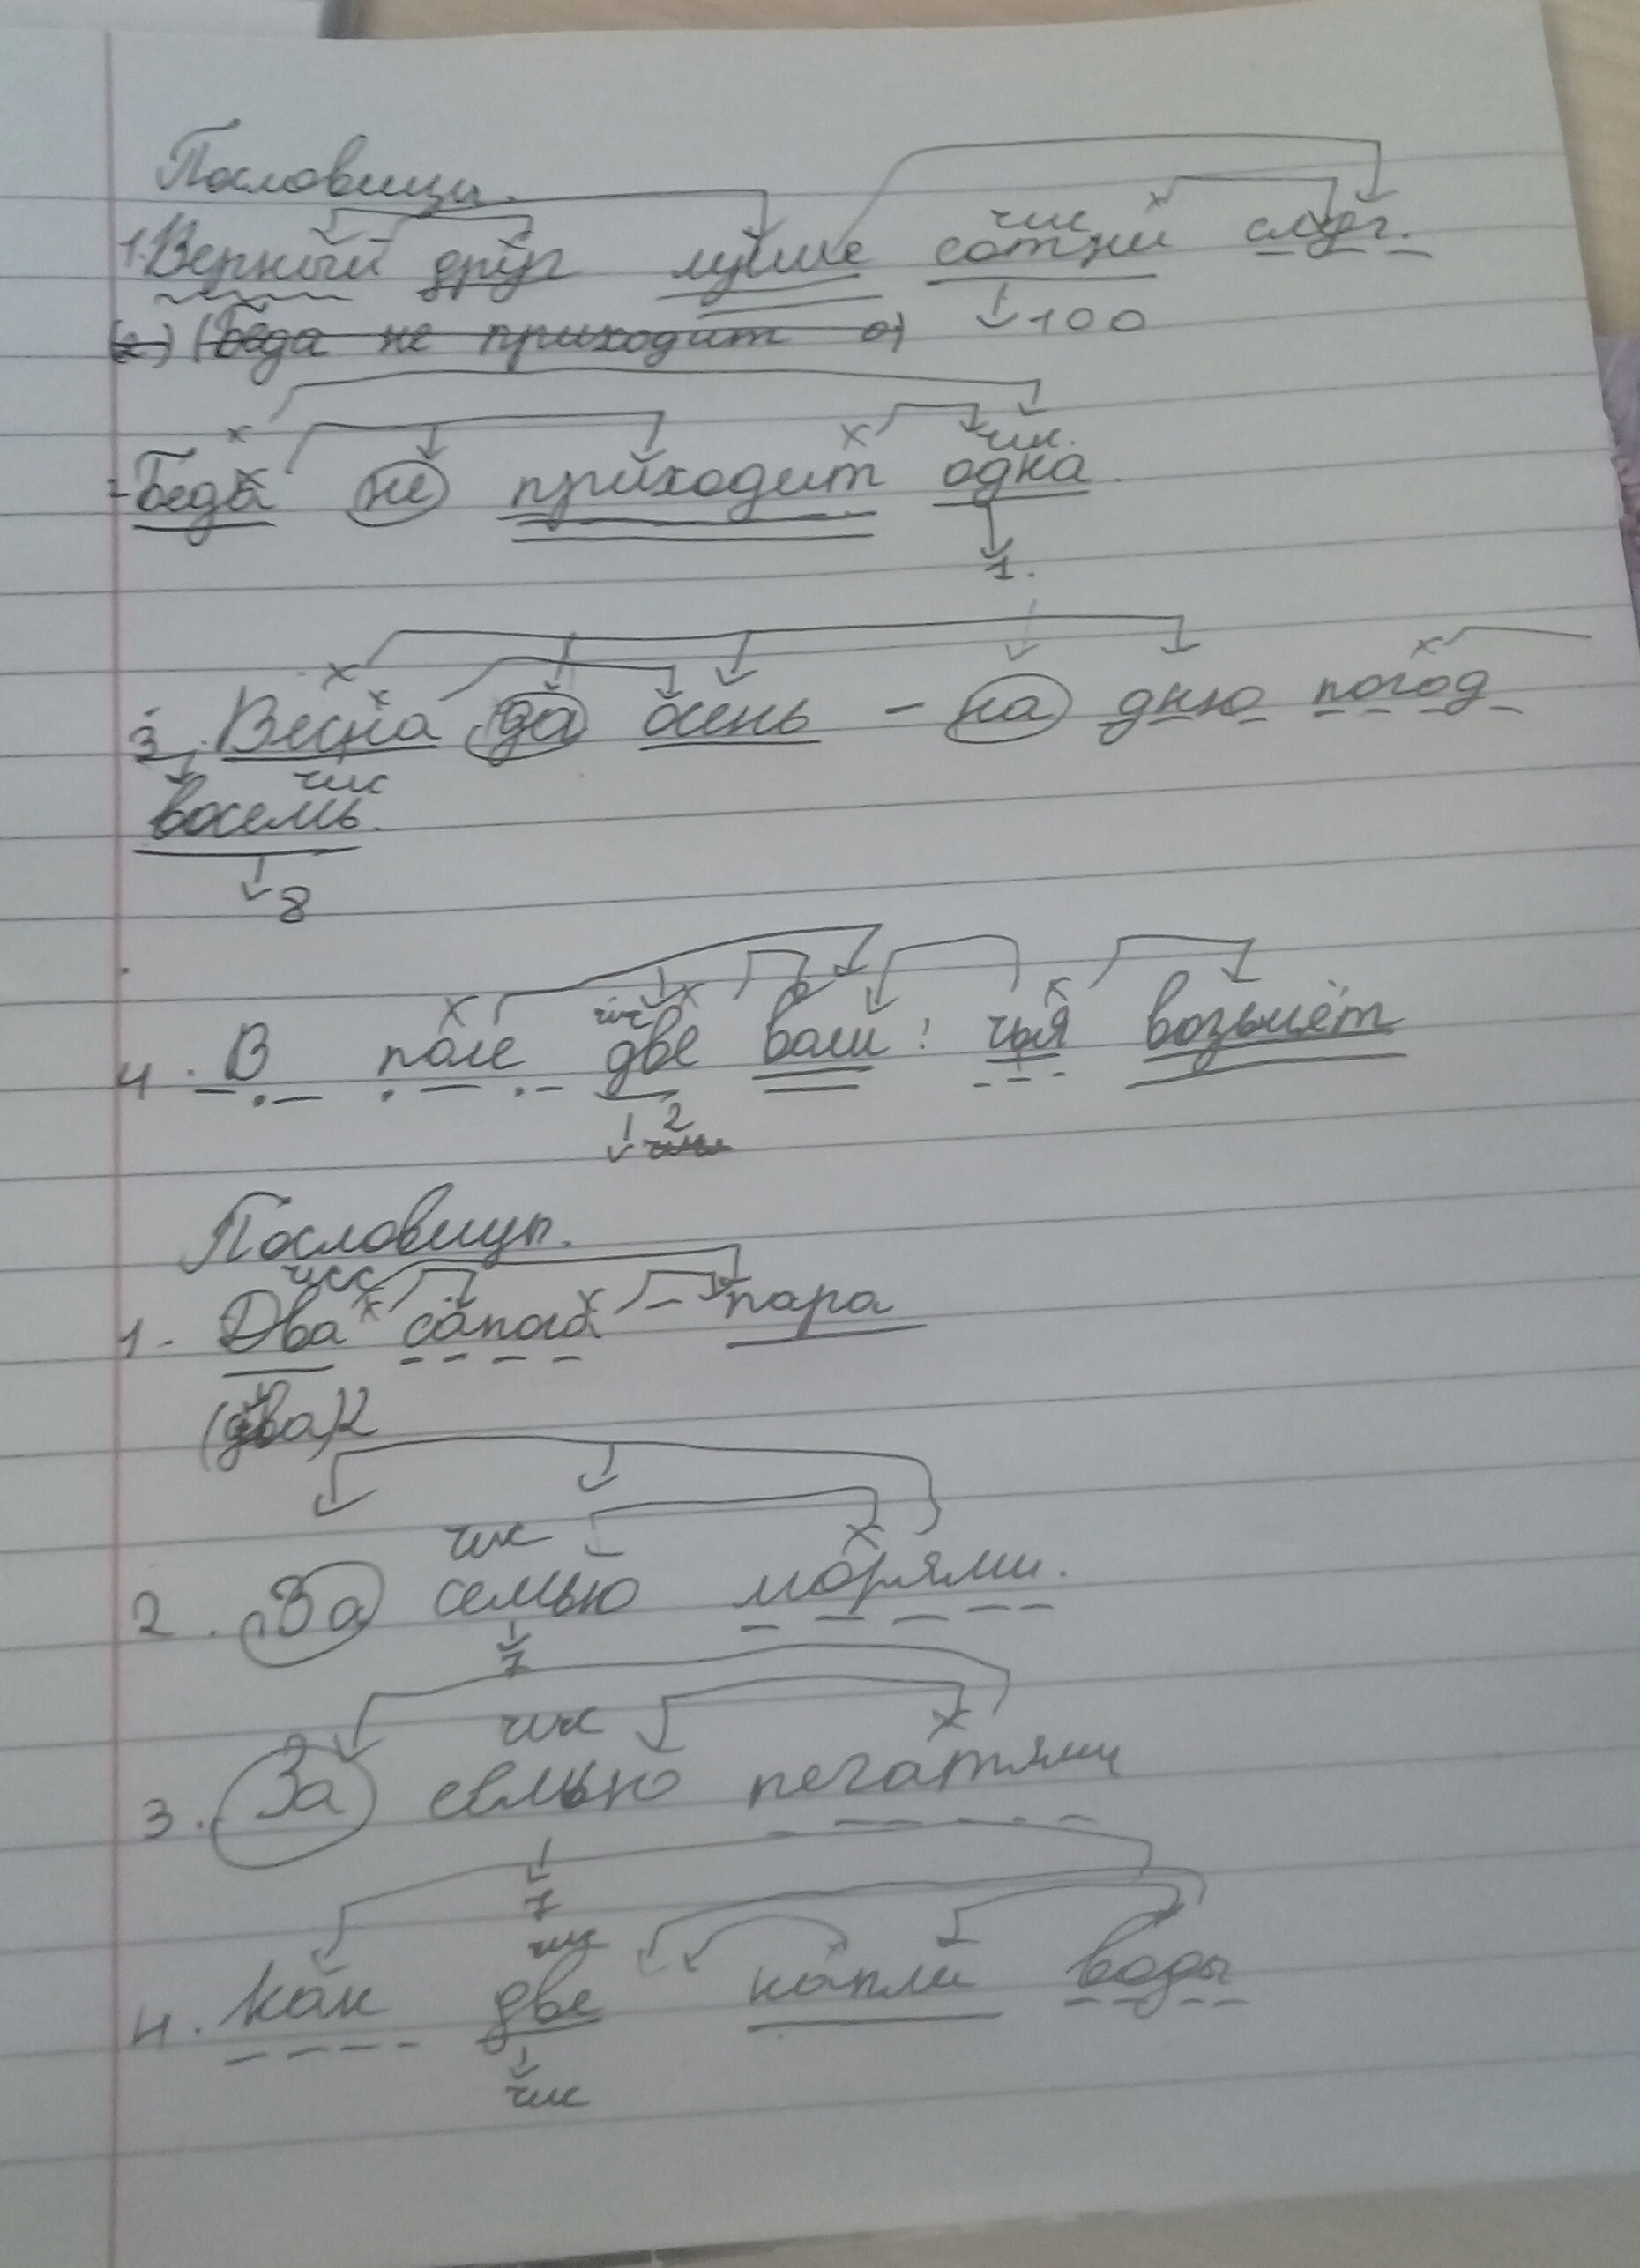 Пословицы.
чис
1. Верный друг лучше сотни слуг.
(Беда не приходит о)
100
чис.
2 Беда не приходит одна.
1.
3. Весна да осень - на дню погод
чис
восемь.
8
чис
4. В поле две воли: чья возьмёт
2
Пословицы.
чис
1. Два сапога - пара
(два) 2
чис
2. За семью морями.
7
чис
3. За семью печатями
7
чис
4. Как две капли воды
чис